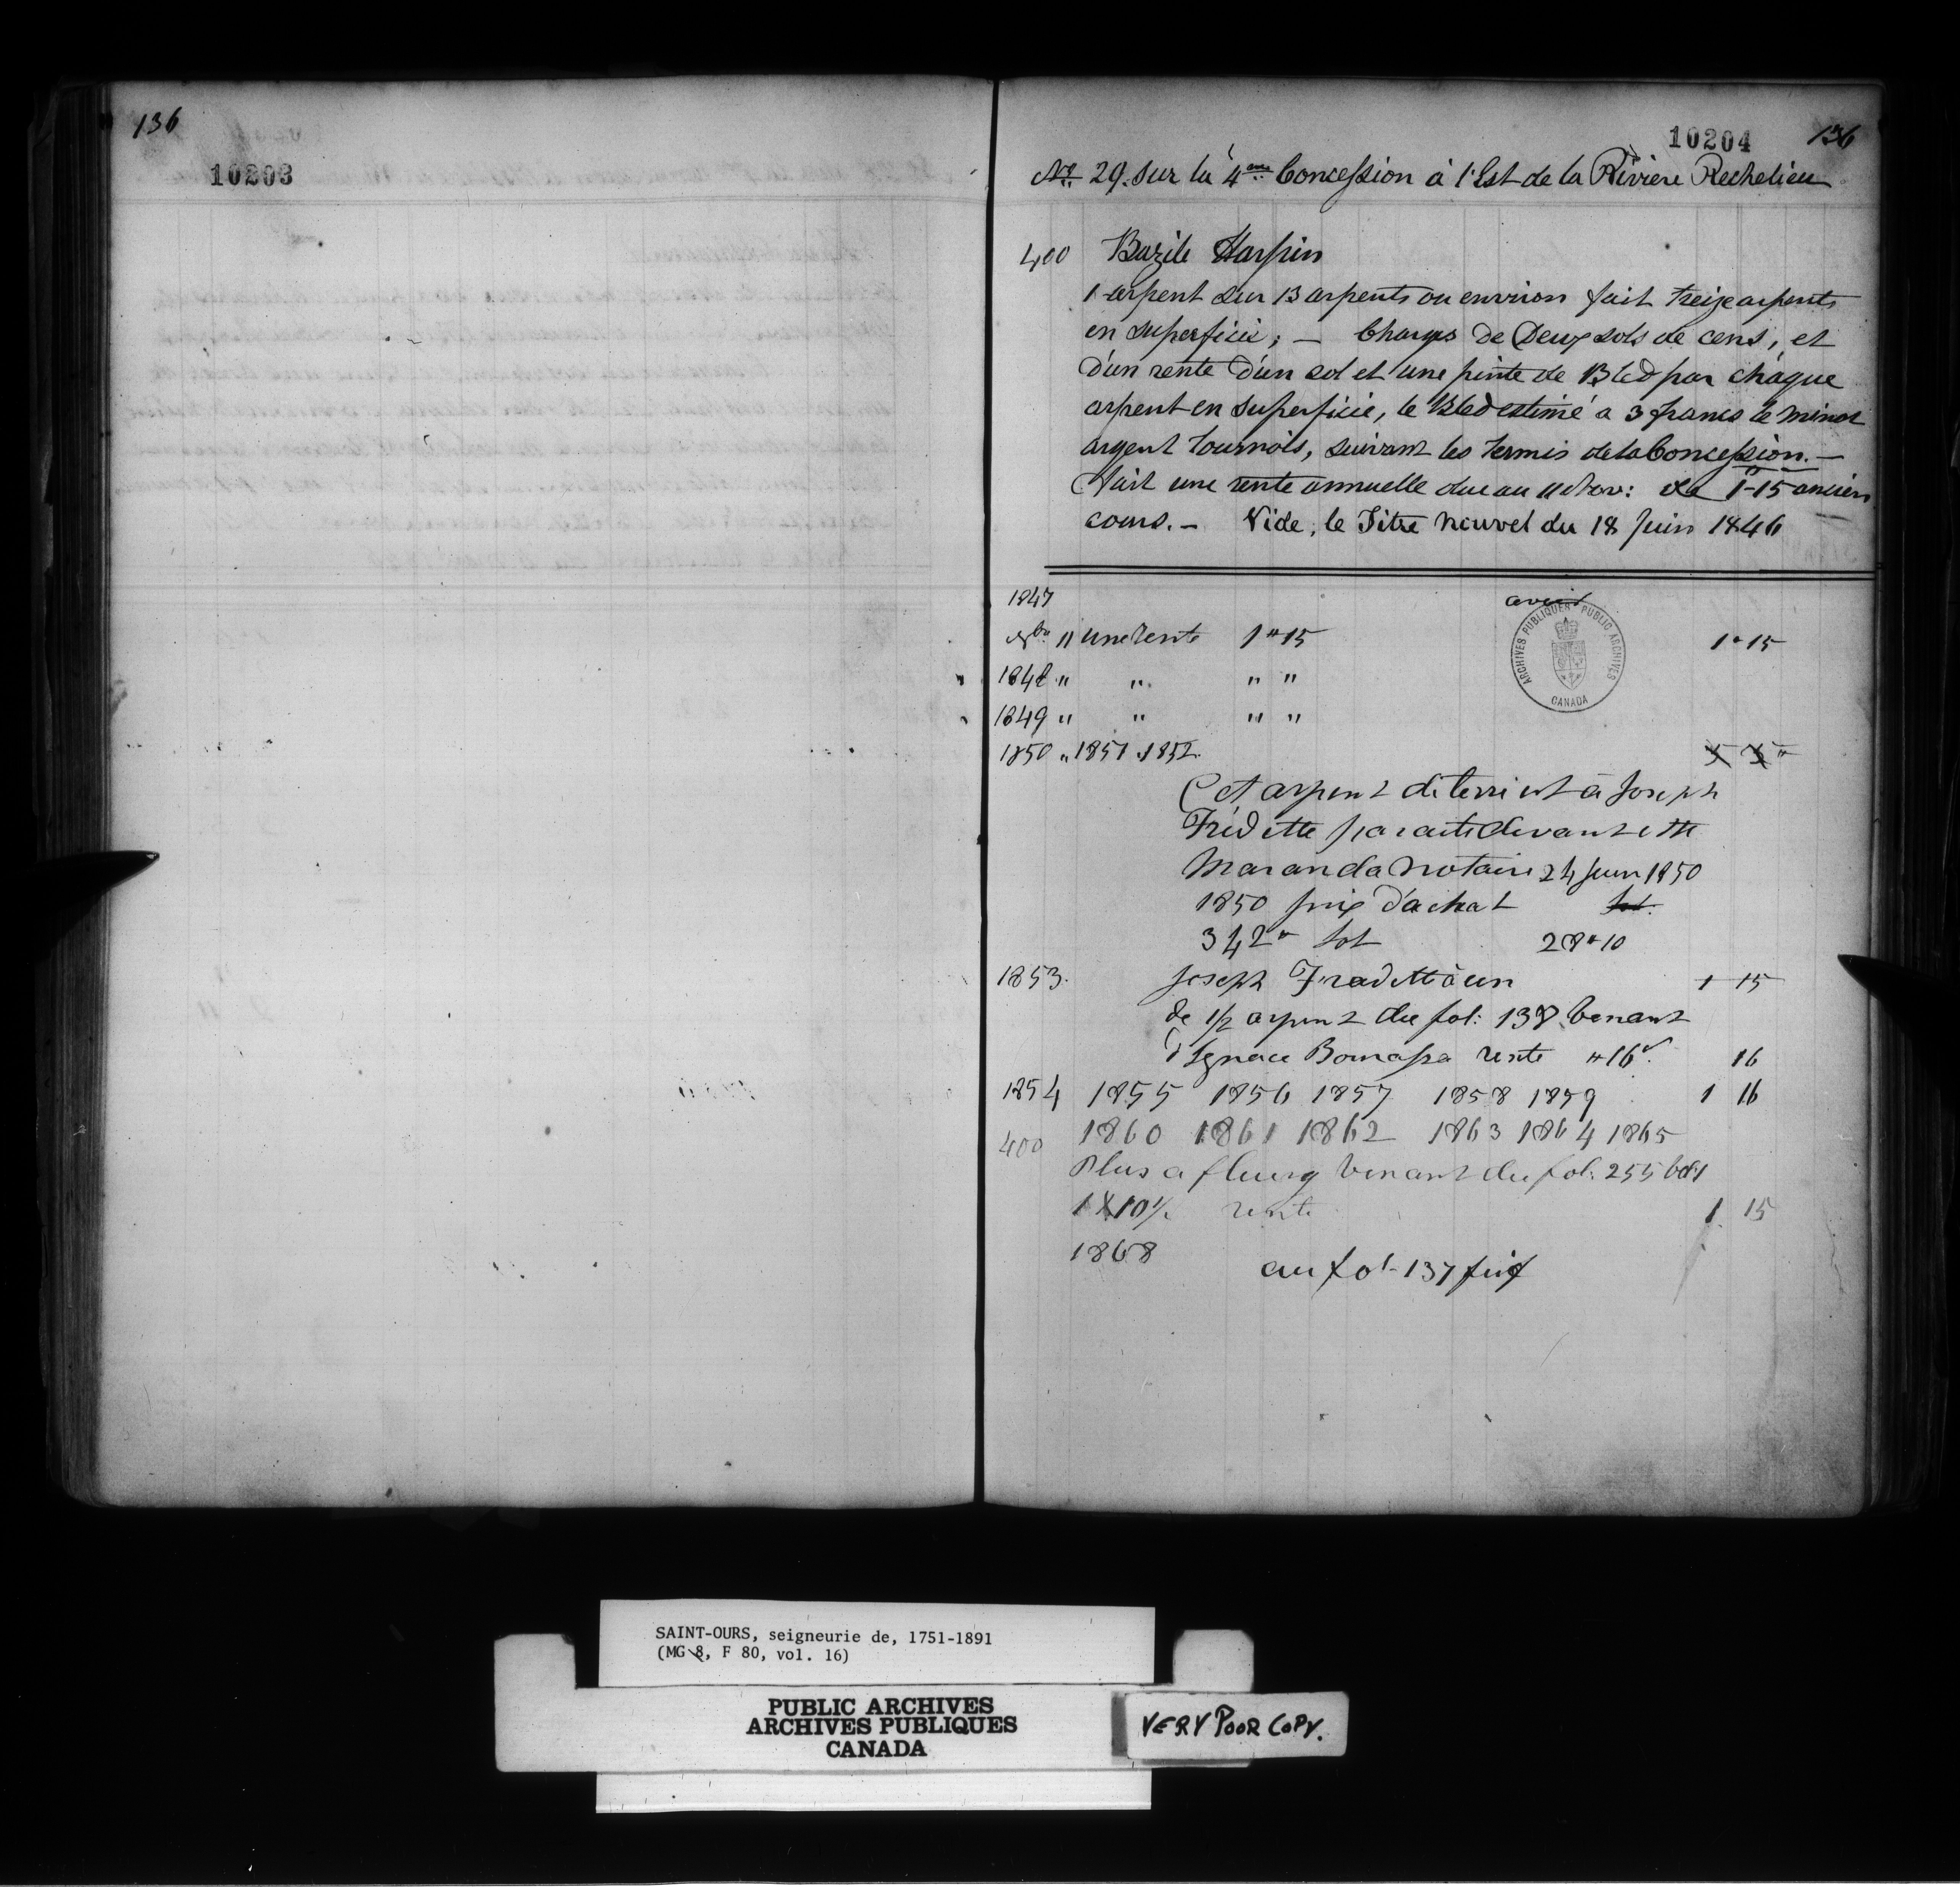 136
10203
10204 136
No 29. sur la 4me Concession à l'Est de la Rivière Rechelieu
400 Bazile Harpin
1 arpent sur 13 arpents ou environ fait treize arpents
en superficie; — Charges de Deux sols de cens, et
d'un rente d'un sol et une pinte de Bled par chaque
arpent en superficie, le Bled estimé a 3 francs le minot
argent tournois, suivant les termes de la Concession. —
Fait une rente annuelle due au 11 Nov: de 1-15 ancien
cours. — Vide, le Titre Nouvel du 18 Juin 1846
1847
9bre 11 une rente 1 " 15 1 " 15
1848 " " " "
1849 " " " "
1850 " 1851 1852
Cet arpent de terre est à Joseph
Frédette par acte devant
Maranda Notaire 24 Juin 1850
1850 prix d'achat
342 " lot 28 " 10
1853. Joseph Fradette a un 1 15
de 1/2 arpent du fol: 138 Venant
d'Ignace Bourassa rente " 16 16
1854 1855 1856 1857 1858 1859 1 16
400 1860 1861 1862 1863 1864 1865
Plus a fleury Venant du fol: 255
1 X 10 1/2 rente 1 15
1868 au fol - 137
ARCHIVES PUBLIQUES PUBLIC ARCHIVES
CANADA
SAINT-OURS, seigneurie de, 1751-1891
(MG 8, F 80, vol. 16)
PUBLIC ARCHIVES
ARCHIVES PUBLIQUES
CANADA
VERY POOR COPY.